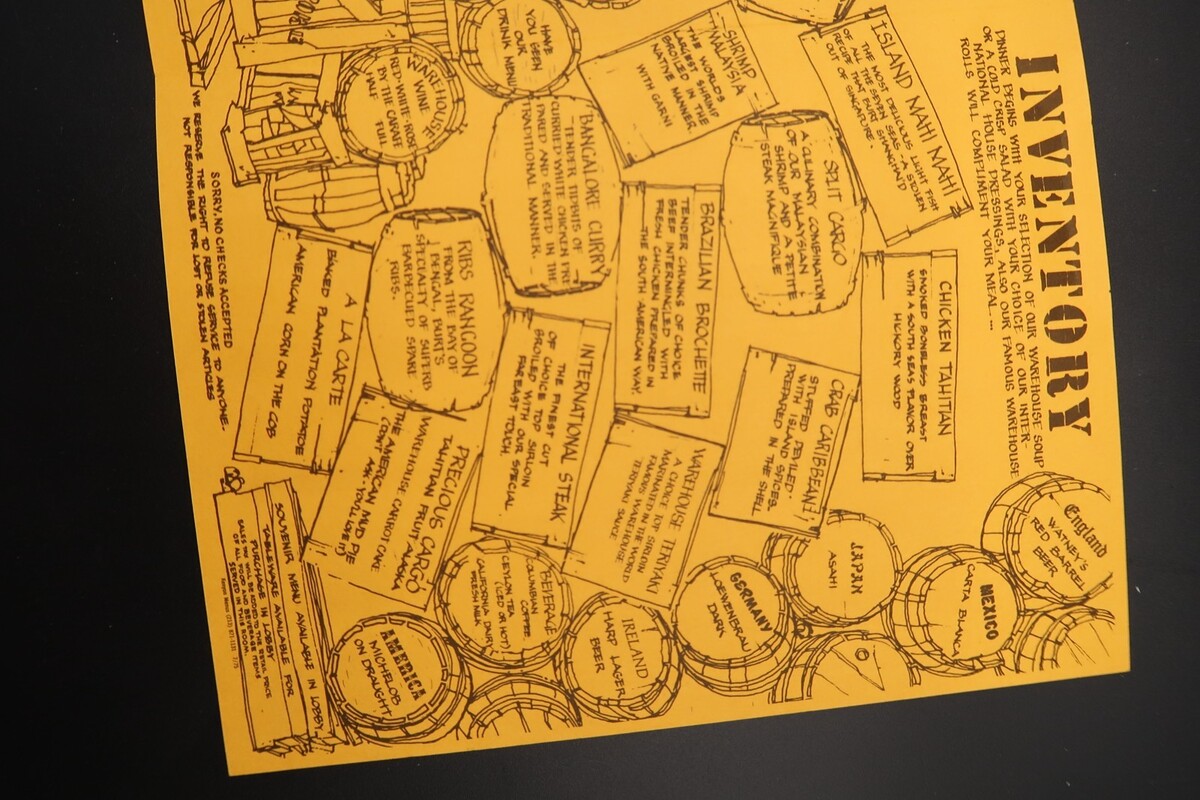 INVENTORY
DINNER BEGINS WITH YOUR SELECTION OF OUR WAREHOUSE SOUP
OR A COLD CRISP SALAD WITH YOUR CHOICE OF OUR INTER-
NATIONAL HOUSE DRESSINGS, ALSO OUR FAMOUS WAREHOUSE
ROLLS WILL COMPLIMENT YOUR MEAL...
ISLAND MAHI MAHI
THE MOST DELICIOUS LIGHT FISH
OF ALL THE SEVEN SEAS - A STOLEN
RECIPE THAT BURT SHANGHAI'D
OUT OF SINGAPORE.
CHICKEN TAHITIAN
SMOKED BONELESS BREAST
WITH A SOUTH SEAS FLAVOR OVER
HICKORY WOOD
SHRIMP
MALAYSIA
THE WORLDS
LARGEST SHRIMP
BROILED IN THE
NATIVE MANNER,
WITH GARNI
SPLIT CARGO
A CULINARY COMBINATION
OF OUR MALAYSIAN
SHRIMP AND A PETITE
STEAK MAGNIFIQUE
CRAB CARIBBEAN
STUFFED, DEVILED
WITH ISLAND SPICES.
PREPARED IN THE SHELL
BRAZILIAN BROCHETTE
TENDER CHUNKS OF CHOICE
BEEF INTERMINGLED WITH
FRESH CHICKEN PREPARED IN
THE SOUTH AMERICAN WAY.
WAREHOUSE TERIYAKI
A CHOICE TOP SIRLOIN
MARINATED IN THE WORLD
FAMOUS WAREHOUSE
TERIYAKI SAUCE
HAVE
YOU SEEN
OUR
DRINK MENU
BANGALORE CURRY
TENDER TIDBITS OF
CURRIED WHITE CHICKEN PRE
PARED AND SERVED IN THE
TRADITIONAL MANNER.
INTERNATIONAL STEAK
THE FINEST CUT
OF CHOICE TOP SIRLOIN
BROILED WITH OUR SPECIAL
FAREAST TOUCH.
WAREHOUSE
WINE
RED-WHITE-ROSÉ
BY THE CARAFE
HALF FULL
RIBS RANGOON
FROM THE BAY OF
BENGAL, BURT'S
SPECIALTY OF SUPERB
BARBECUED SPARE
RIBS.
PRECIOUS CARGO
TAHITIAN FRUIT
WAREHOUSE CARROT CAKE
THE AMERICAN MUD PIE
YOU'LL LOVE IT
A LA CARTE
BAKED PLANTATION POTATOE
AMERICAN CORN ON THE COB
SORRY, NO CHECKS ACCEPTED
WE RESERVE THE RIGHT TO REFUSE SERVICE TO ANYONE.
NOT RESPONSIBLE FOR LOST OR STOLEN ARTICLES
England
WATNEY'S
RED BARREL
BEER
MEXICO
CARTA BLANCA
JAPAN
ASAHI
GERMANY
LOEWENBRAU
DARK
IRELAND
HARP LAGER
BEER
BEVERAGE
COLUMBIAN
COFFEE
CEYLON TEA
(ICED OR HOT)
CALIFORNIA DAIRY
FRESH MILK
AMERICA
MICHELOB
ON DRAUGHT
SOUVENIR MENU AVAILABLE IN LOBBY
TABLEWARE AVAILABLE FOR
PURCHASE IN LOBBY
SALES TAX WILL BE ADDED TO THE RETAIL PRICE
OF ALL FOOD AND BEVERAGE ITEMS
SERVED IN THIS ROOM.